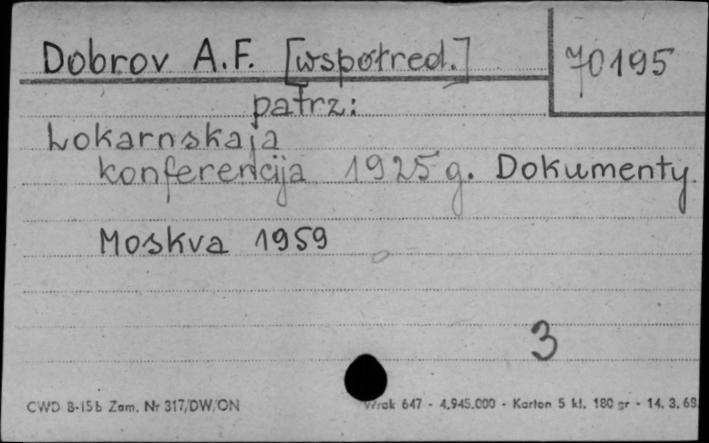 Dobrov A.F. [współred.]
70195
patrz:
Lokarnskaja
konferencija 1925 g. Dokumenty.
Moskva 1959
3
CWD B-15b Zam. Nr 317/DW/ON
647 - 4.945.000 - Karton 5 kl. 180 gr - 14. 3. 68